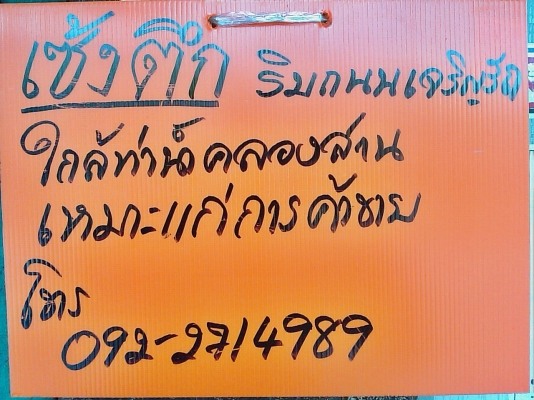 เซ้งตึก ริมถนนเจริญรัถ
ใกล้ท่าน้ำคลองสาน
เหมาะแก่การค้าขาย
โทร
092-2714989